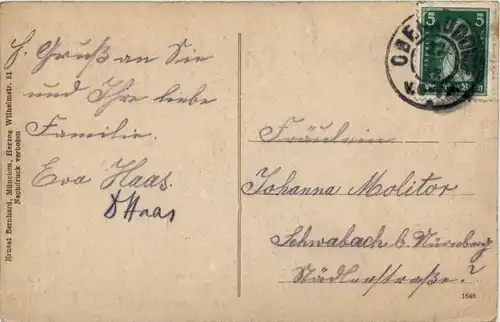 H. Gruß an Sie
und Ihre liebe
Familie.
Eva Haas.
D Haas
Ernest Bernhard, München, Herzog Wilhelmstr. 21
Nachdruck verboten
5 5
Fräulein
Johanna Molitor
Schwabach b. Nürnberg
Städlerstraße.?
1648